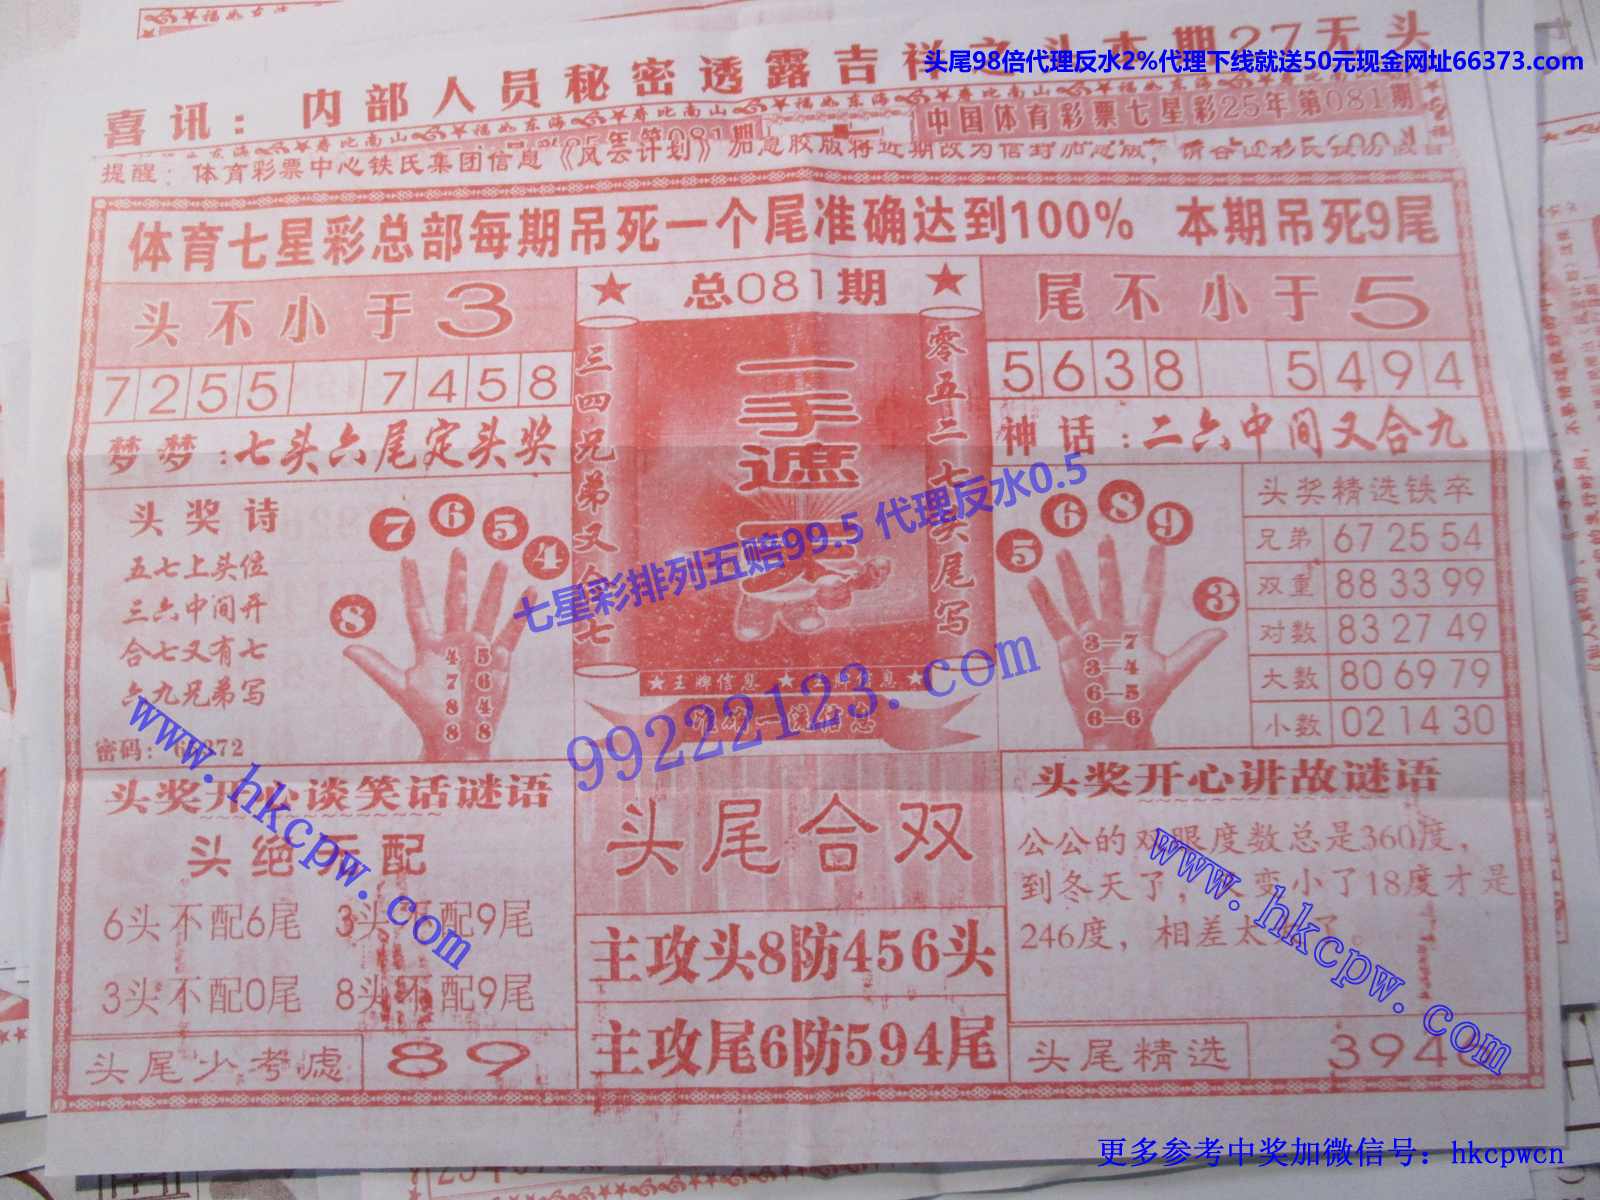 头尾98倍代理反水2%代理下线就送50元现金网址66373.com
喜讯：内部人员秘密透露吉祥之头本期27无头
寿比南山 福如东海 寿比南山 福如东海 寿比南山
中国体育彩票七星彩25年第081期
提醒：体育彩票中心铁氏集团信息《风云计划》加急胶版将近期改为信封加急版，
体育七星彩总部每期吊死一个尾准确达到100% 本期吊死9尾
头不小于3
7255 7458
梦梦：七头六尾定头奖
头奖诗
五七上头位
三六中间开
合七又有七
六九兄弟写
密码：
8 7 6 5 4
4 5
7 6
8 4
8 8
★ 总081期 ★
三四兄弟又合七
一手遮天
零五二七头尾写
★王牌信息★王牌信息★
七星彩排列五赔99.5 代理反水0.5
99222123.com
尾不小于5
5638 5494
神话：二六中间又合九
5 6 8 9 3
3—7
3—4
6—5
6—6
头奖精选铁卒
兄弟 67 25 54
双重 88 33 99
对数 83 27 49
大数 80 69 79
小数 02 14 30
头奖开心谈笑话谜语
头绝不配
6头不配6尾 3头不配9尾
3头不配0尾 8头不配9尾
头尾少考虑 89
头尾合双
主攻头8防456头
主攻尾6防594尾
头奖开心讲故谜语
公公的双眼度数总是360度，
到冬天了，变小了18度才是
246度，相差太
头尾精选 394
www.hkcpw.com
www.hkcpw.com
更多参考中奖加微信号：hkcpwcn